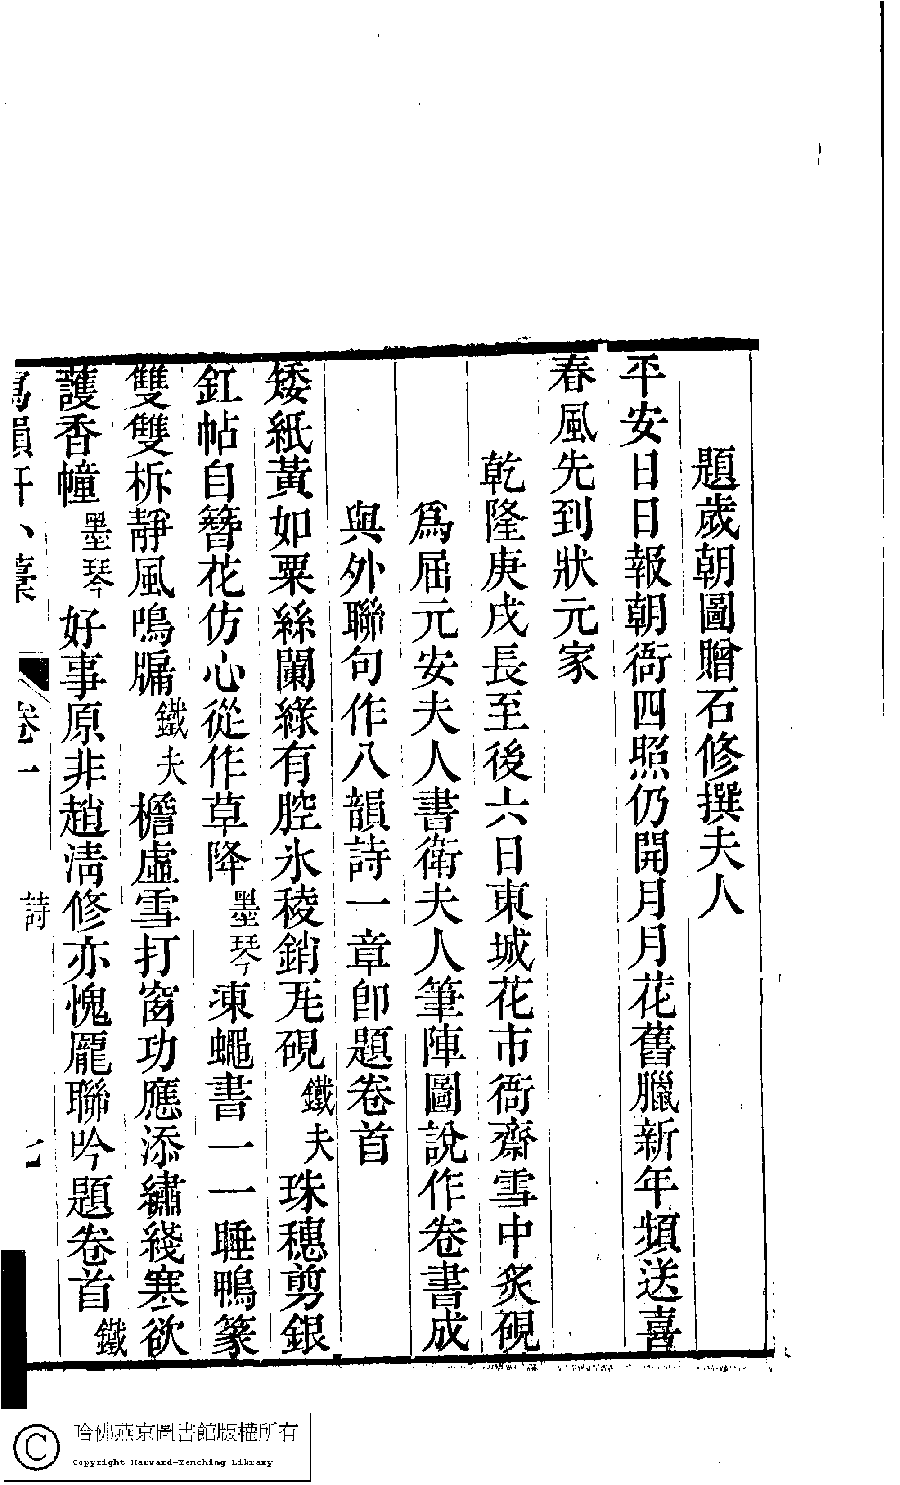 題歲朝圖贈石修撰夫人
平安日日報朝衙四照仍開月月花舊臘新年頻送喜
春風先到狀元家
乾隆庚戌長至後六日東城花市衙齋雪中炙硯
爲屈元安夫人書衛夫人筆陣圖說作卷書成
與外聯句作八韻詩一章卽題卷首
矮紙黃如粟絲闌綠有腔氷稜銷瓦硯鐵夫珠穗剪銀
釭帖自簪花仿心從作草降墨琴凍蠅書一一睡鴨篆
雙雙柝靜風鳴牖鐵夫檐虛雪打窗功應添繡綫寒欲
護香幢墨琴好事原非趙淸修亦愧龎聯吟題卷首鐵
寫韻軒小藁 卷一 詩 七
哈佛燕京圖書館版權所有
Copyright Harvard-Yenching Library